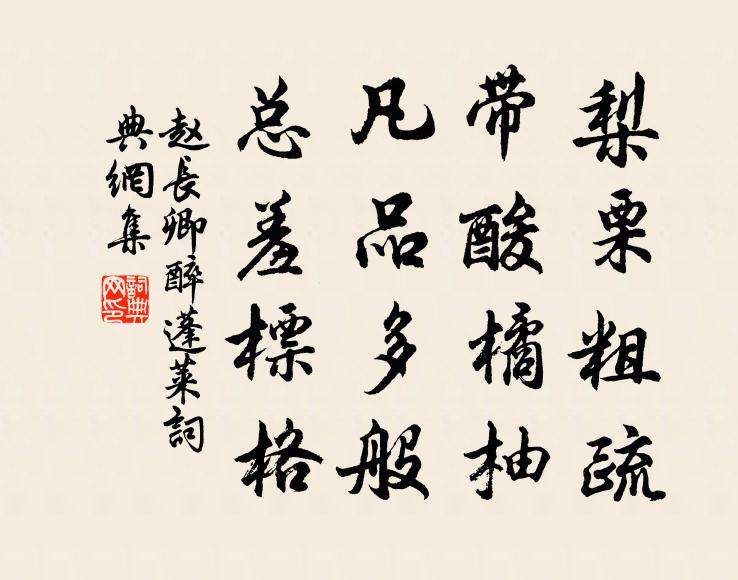 梨栗粗疏
带酸橘柚
凡品多般
总羞標格
赵長卿醉蓬莱詞
典網集
詞典网印